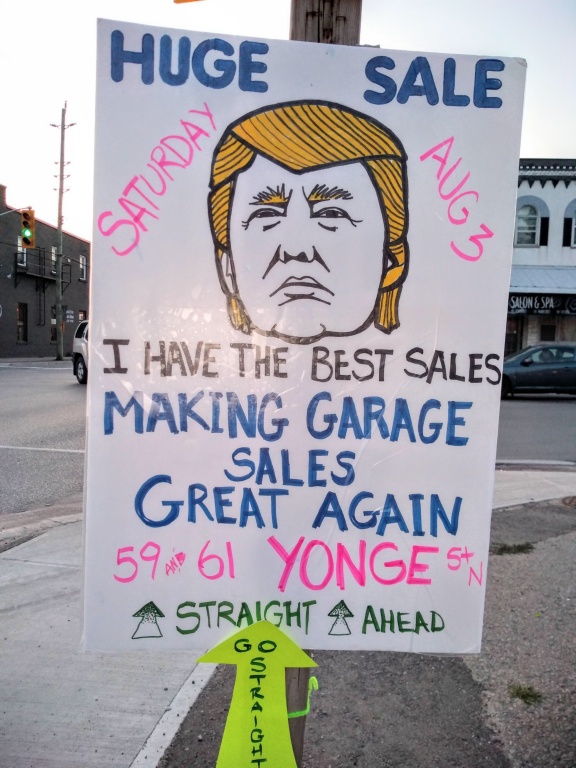 HUGE SALE
SATURDAY
AUG 3
I HAVE THE BEST SALES
MAKING GARAGE
SALES
GREAT AGAIN
59 AND 61 YONGE St N
STRAIGHT AHEAD
GO
STRAIGHT
SALON & SPA